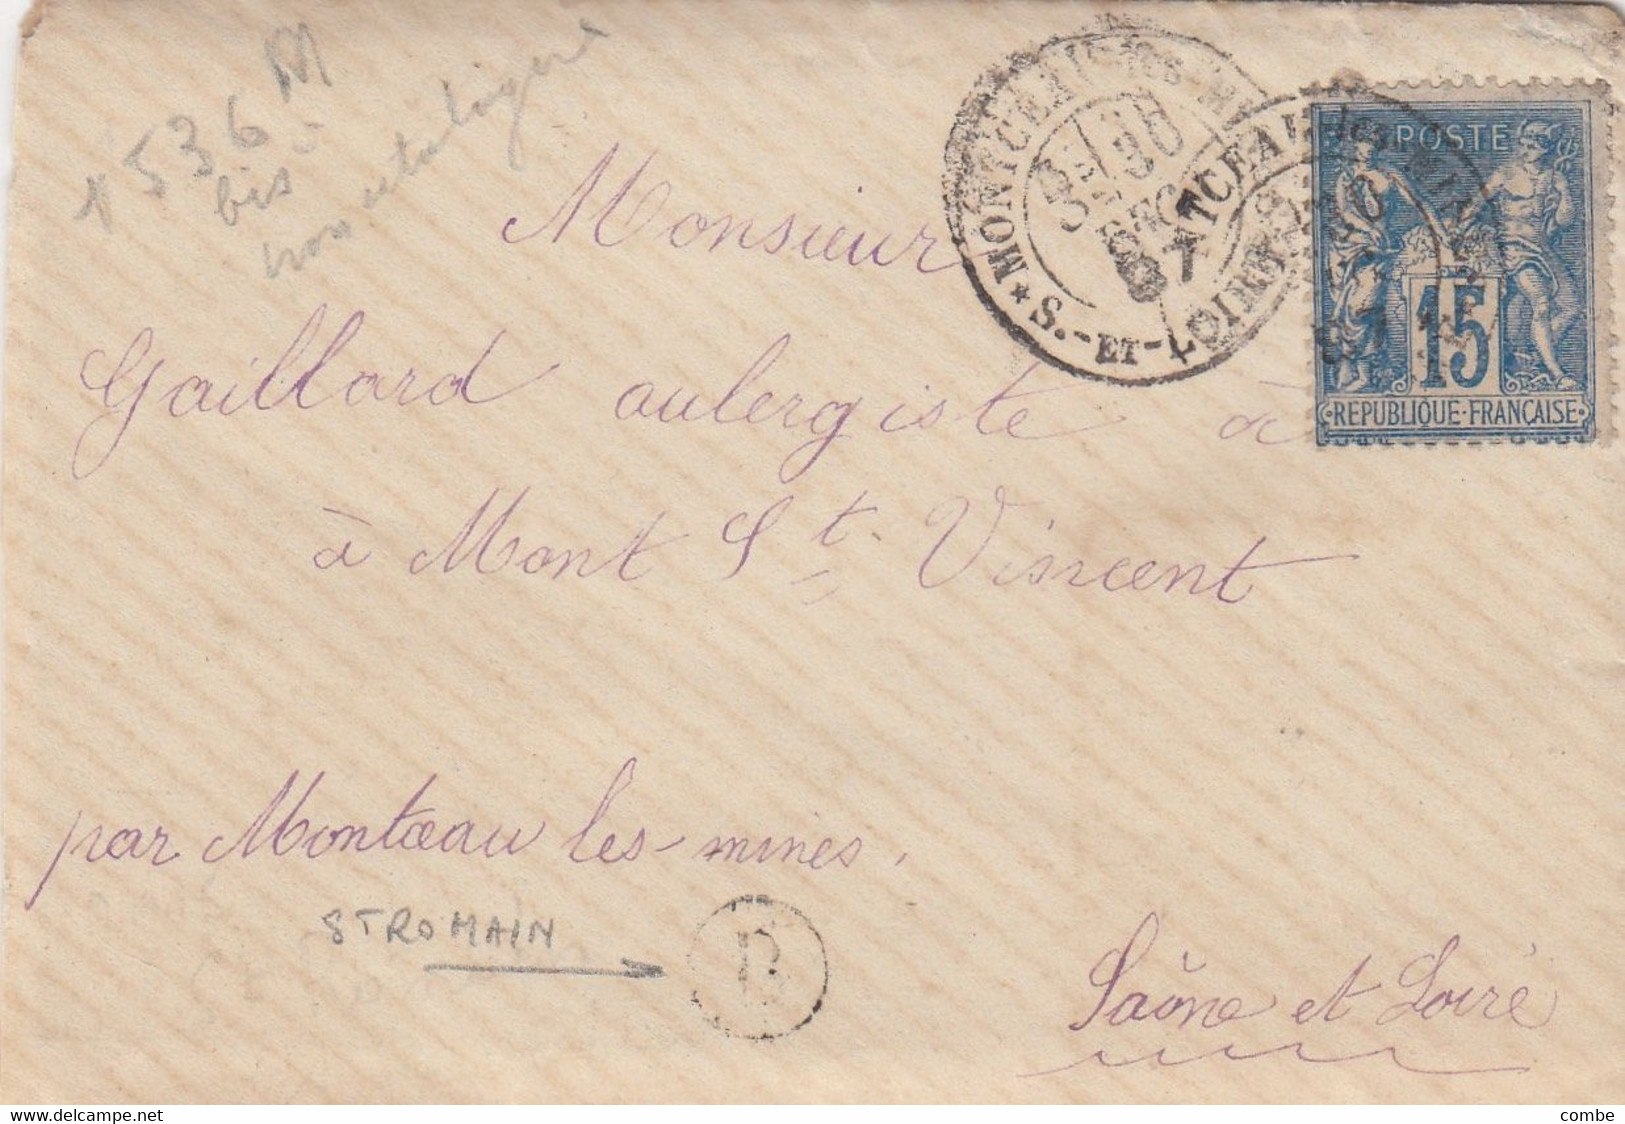 1536 M
bis
non catalogué
Monsieur
Gaillard aubergiste à
à Mont St. Vincent
par Montceau les-mines.
ST ROMAIN
B
Saône et Loire
MONTCEAU-les-M
DEC
97
S.-ET-LOIRE
POSTE
15
REPUBLIQUE·FRANÇAISE
www.delcampe.net
combe